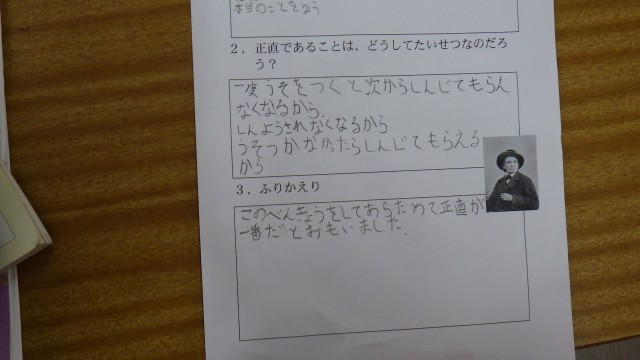 本当のことをゆう
2．正直であることは、どうしてたいせつなのだろ
う？
一度うそをつくと次からしんじてもらえん
なくなるから、
しんようされなくなるから
うそつかなかったらしんじてもらえる
から
3．ふりかえり
このべんきょうをしてあらためて正直が
一番だとおもいました．